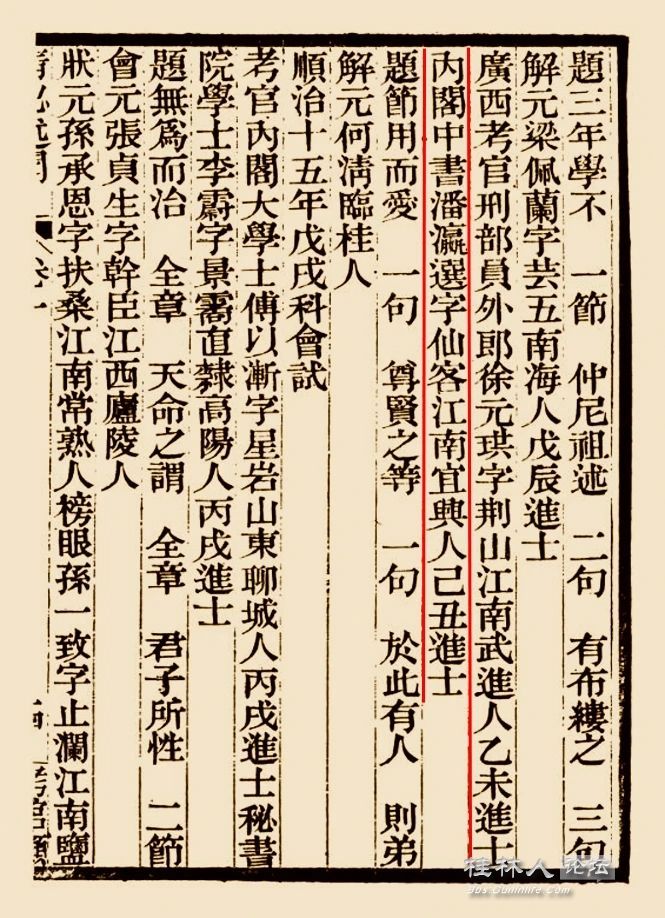 題三年學不　一節　仲尼祖述　二句　有布縷之　三句
解元梁佩蘭字芸五南海人戊辰進士
廣西考官刑部員外郎徐元珙字荆山江南武進人乙未進士
內閣中書潘瀛選字仙客江南宜興人己丑進士
題節用而愛　一句　尊賢之等　一句　於此有人　則弟
解元何淸臨桂人
順治十五年戊戌科會試
考官內閣大學士傅以漸字星岩山東聊城人丙戌進士秘書
院學士李霨字景霱直隸高陽人丙戌進士
題無爲而治　全章　天命之謂　全章　君子所性　二節
會元張貞生字幹臣江西廬陵人
狀元孫承恩字扶桑江南常熟人榜眼孫一致字止瀾江南鹽
卷一
桂林人论坛